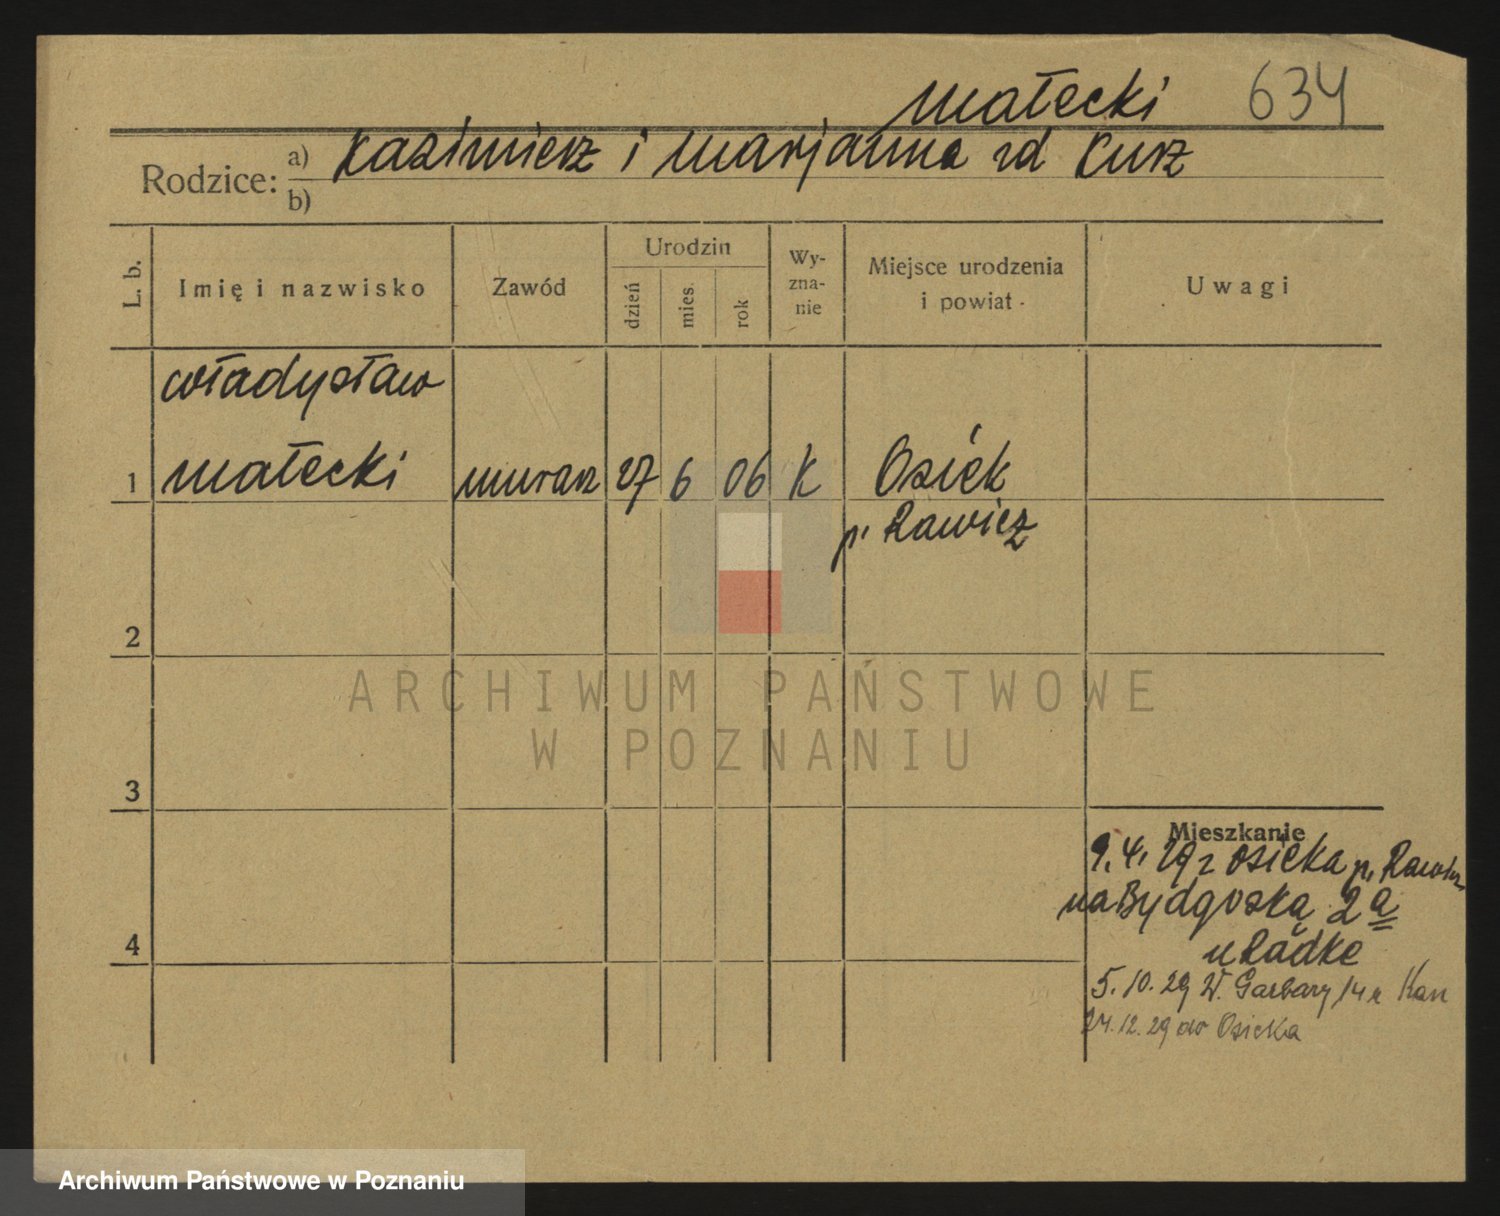 Małecki 634
Rodzice: a) Kazimierz i Marjanna zd Kurz
b)
L. b.
Imię i nazwisko
Zawód
Urodzin
dzień
mies.
rok
Wy-
zna-
nie
Miejsce urodzenia
i powiat
Uwagi
Władysław
1 Małecki murarz 27 6 06 K Osiek
p. Rawicz
2
3
4
Mieszkanie
9.4.29 z Osieka p. Rawicz
na Bydgoską 2a
u Radke
5.10.29 W. Garbary 14 u
24.12.29 do Osieka
ARCHIWUM PAŃSTWOWE
W POZNANIU
Archiwum Państwowe w Poznaniu